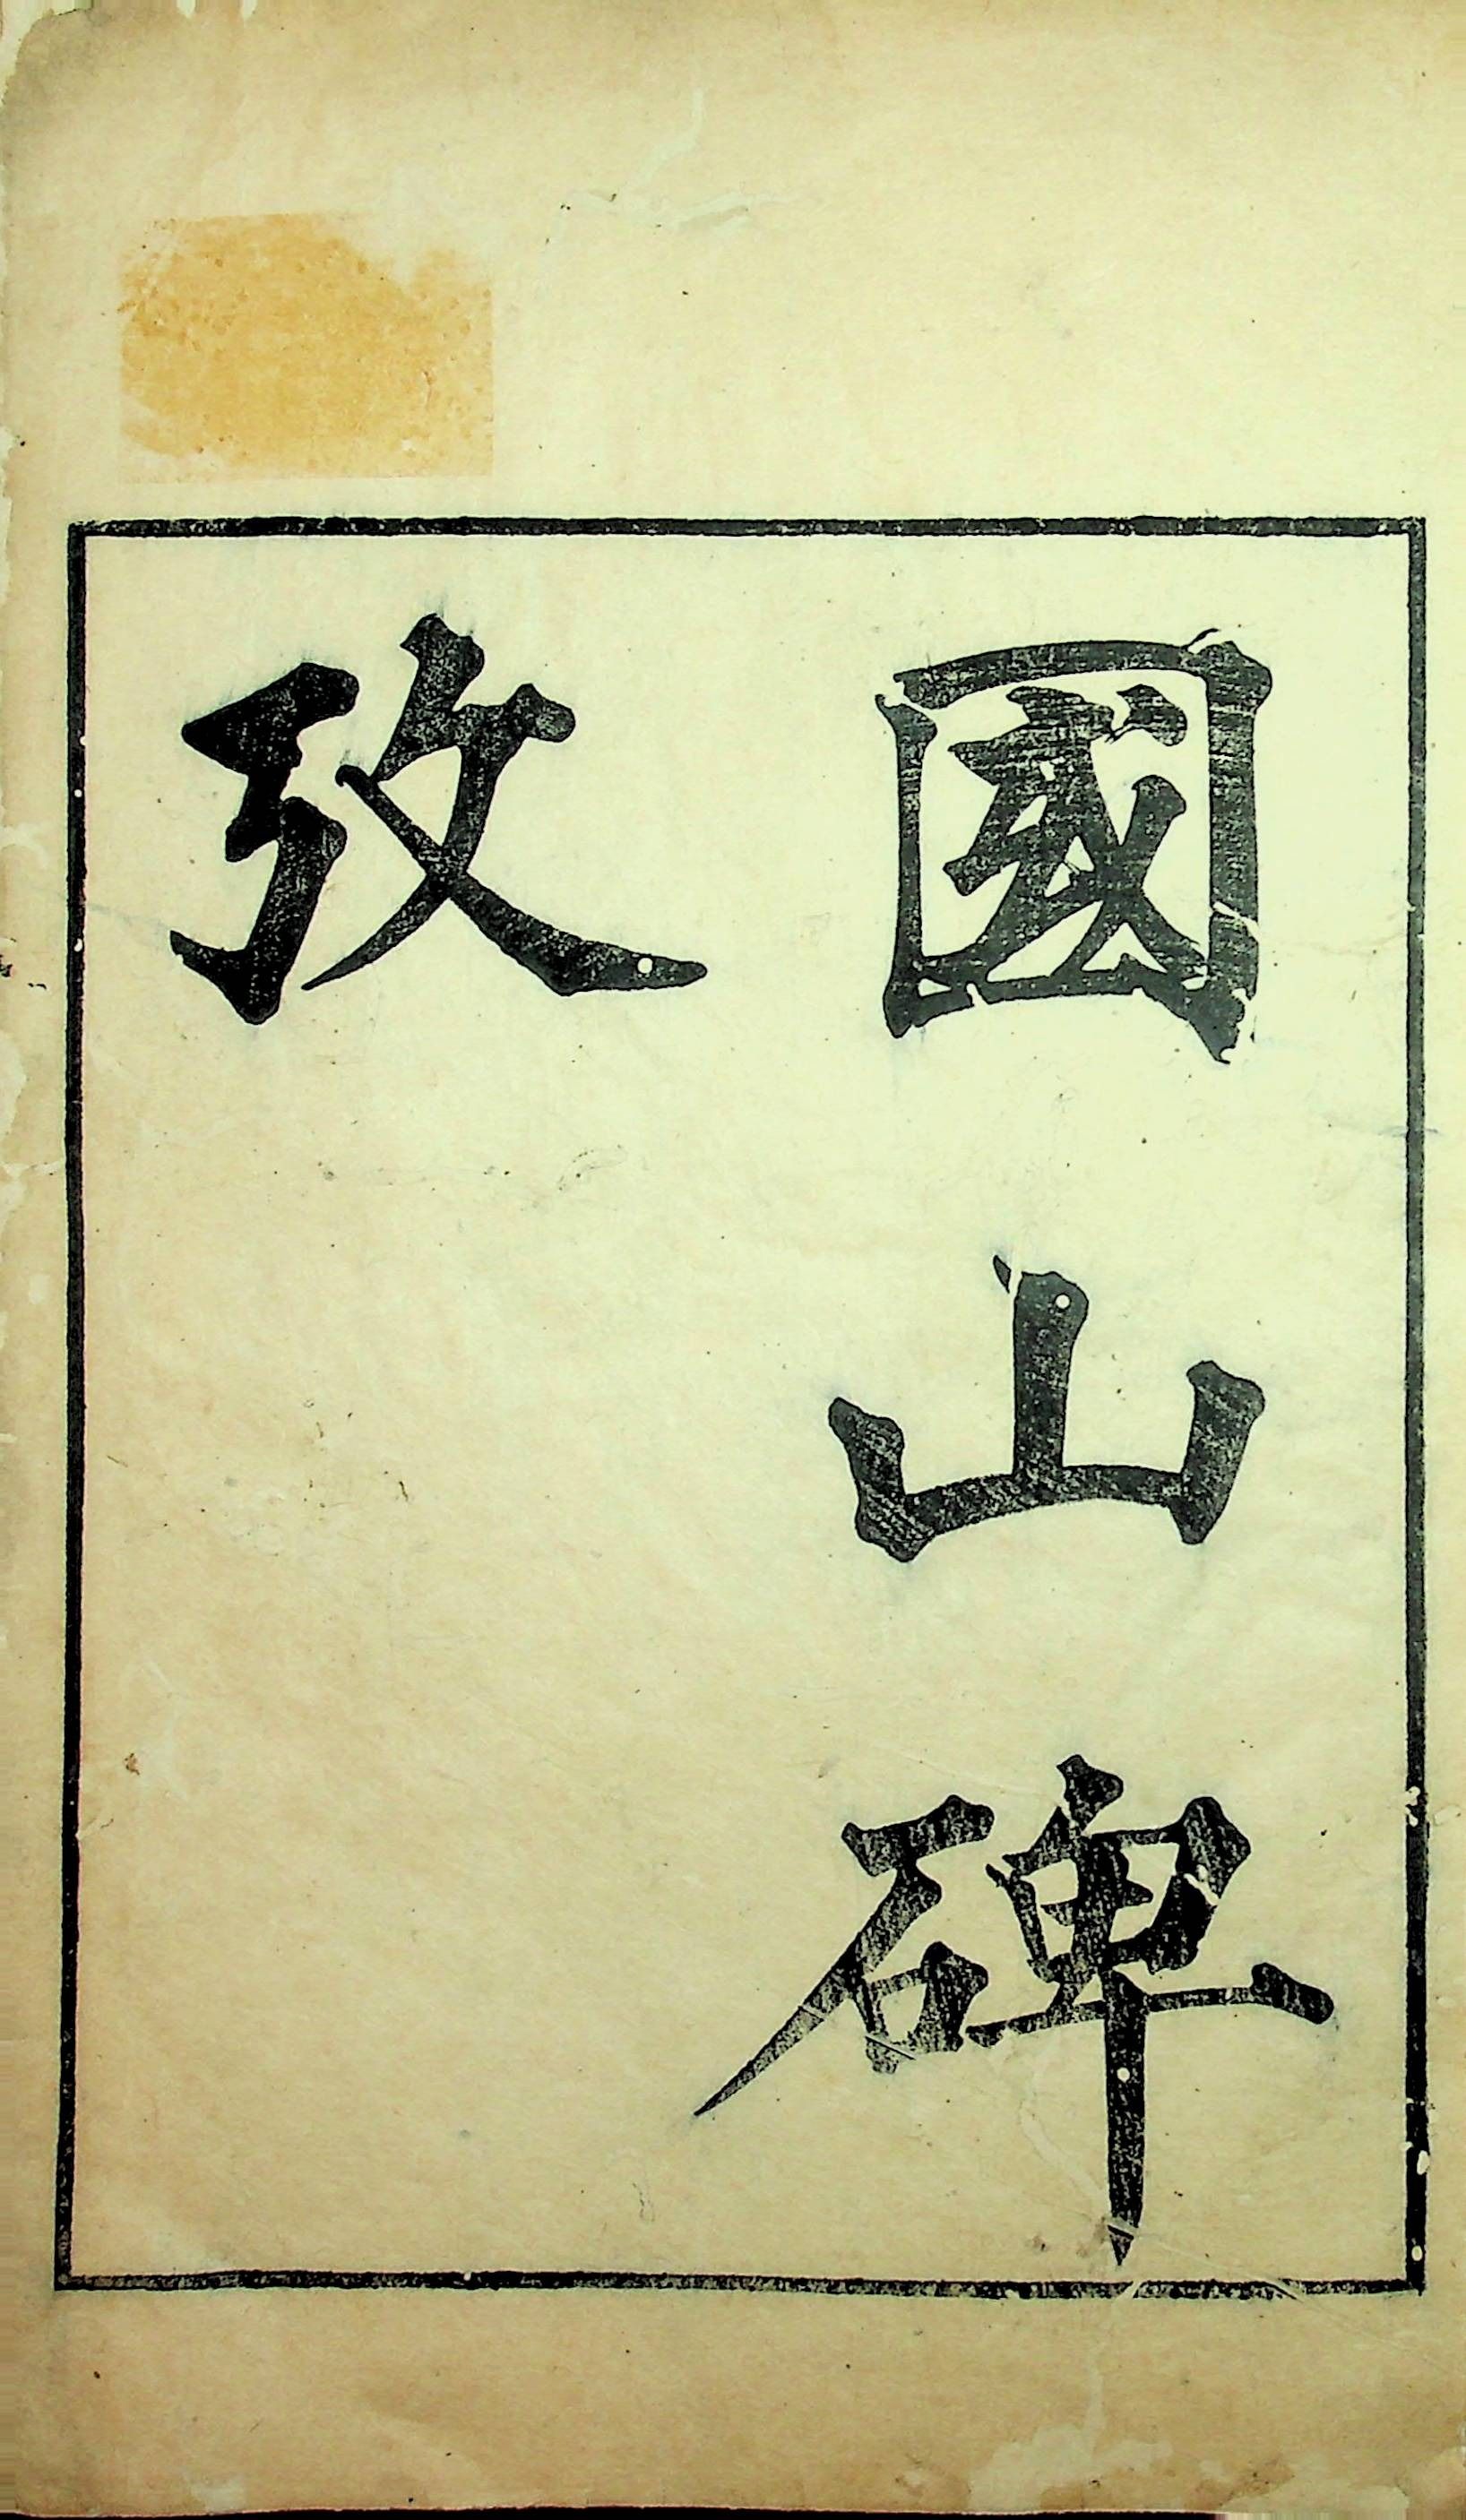 國山碑
攷